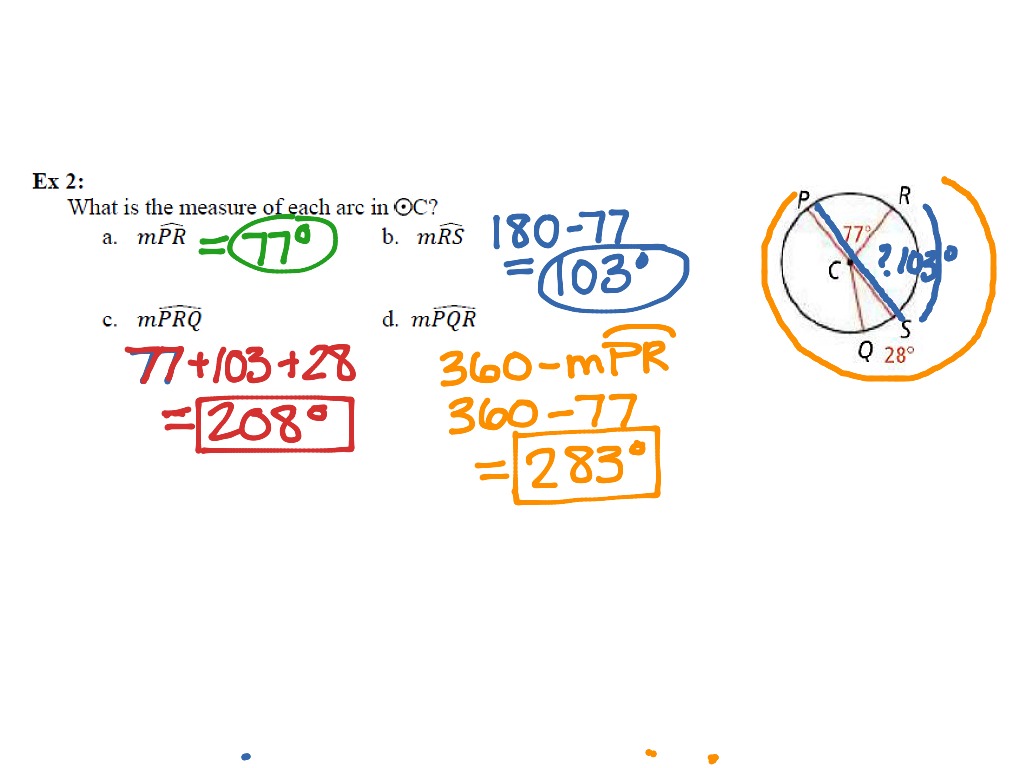 Ex 2:
What is the measure of each arc in ⊙C?
a. mPR = 77°
b. mRS 180-77
= 103°
c. mPRQ
77+103+28
= 208°
d. mPQR
360-mPR
360-77
= 283°
P
R
77°
C
? 103°
S
Q 28°